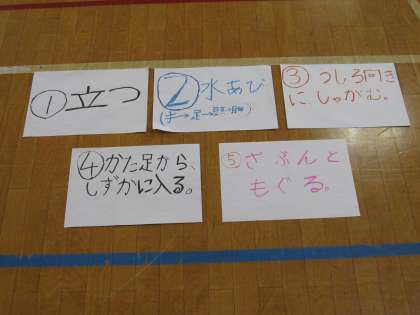 ①立つ
②水あび
(手→足→
③うしろ向き
にしゃがむ。
④かた足から、
しずかに入る。
⑤ざぶんと
もぐる。